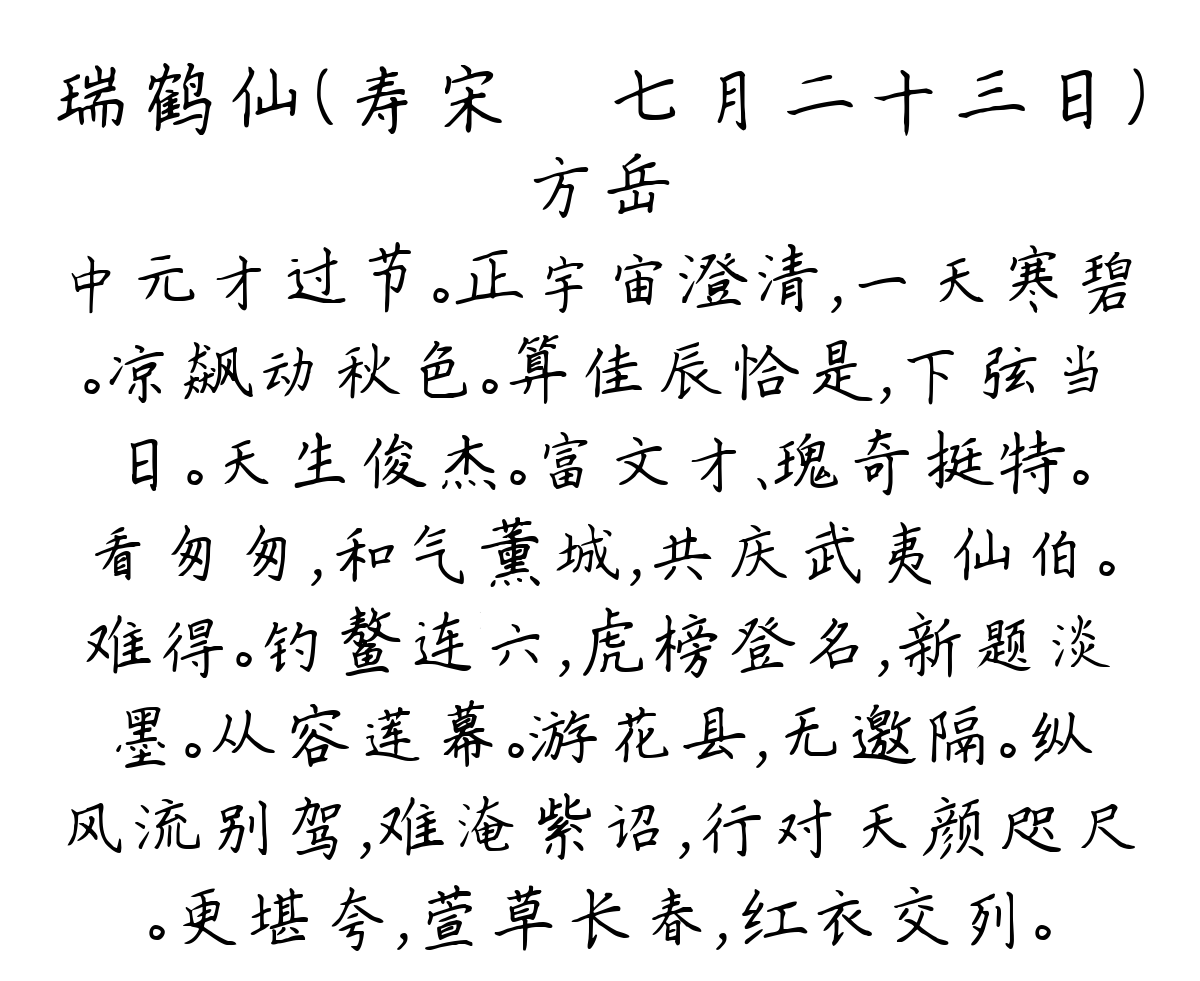 瑞鹤仙(寿宋　七月二十三日)
方岳
中元才过节。正宇宙澄清,一天寒碧
。凉飙动秋色。算佳辰恰是,下弦当
日。天生俊杰。富文才、瑰奇挺特。
看匆匆,和气薰城,共庆武夷仙伯。
难得。钓鳌连六,虎榜登名,新题淡
墨。从容莲幕。游花县,无邀隔。纵
风流别驾,难淹紫诏,行对天颜咫尺
。更堪夸,萱草长春,红衣交列。